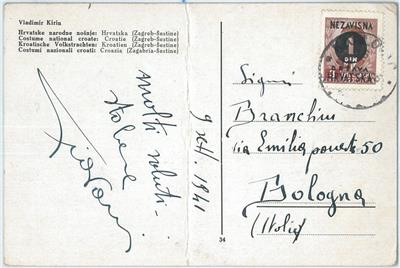 Vladimir Kirin
Hrvatske narodne nošnje: Hrvatska (Zagreb-Šestine)
Costume national croate: Croatie (Zagreb-Šestine)
Kroatische Volkstrachten: Kroatien (Zagreb-Šestine)
Costumi nazionali croati: Croazia (Zagabria-Šestine)
molti saluti
9 sett. 1941
NEZAVISNA
1
DIN
DRŽAVA
HRVATSKA
Signri
Branchini
via Emilia ponente 50
Bologna
(Italia)
34